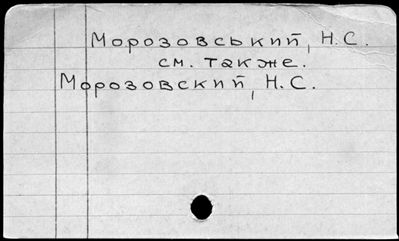 Морозовський, Н.С.
см. также.
Морозовский, Н.С.